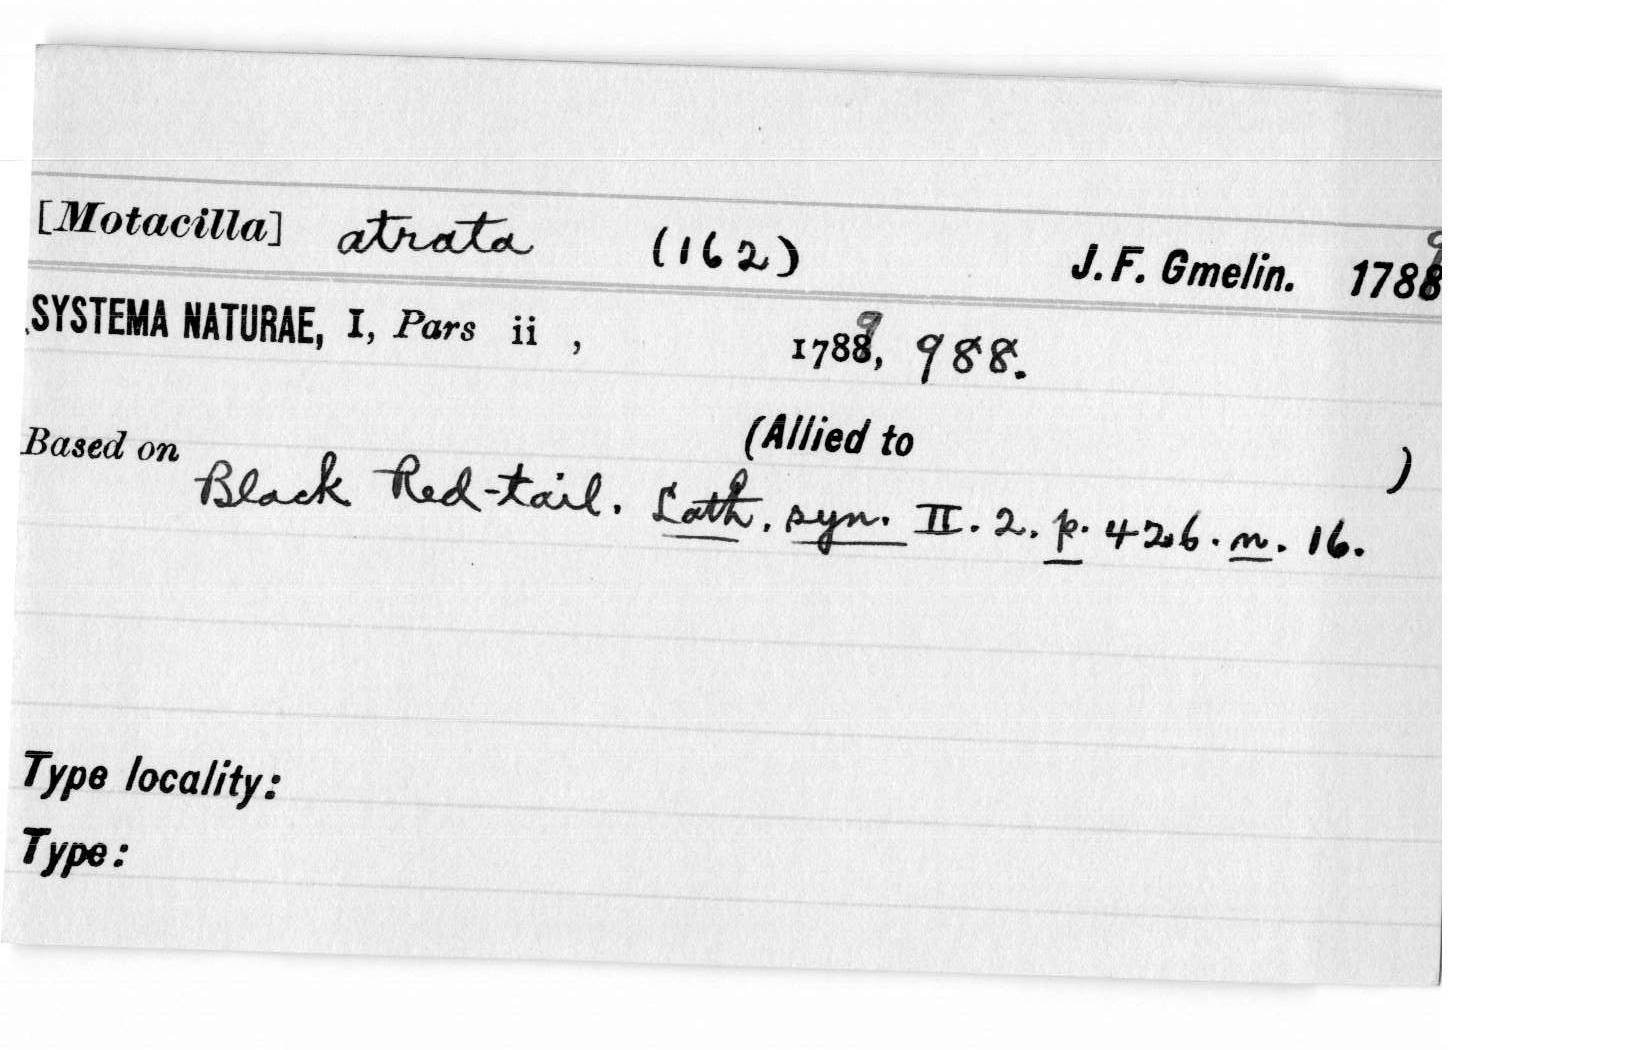 [Motacilla] atrata (162) J. F. Gmelin. 1788 9
SYSTEMA NATURAE, I, Pars ii , 1788 9, 988.
Based on (Allied to )
Black Red-tail. Lath. syn. II. 2. p. 426. n. 16.
Type locality:
Type: